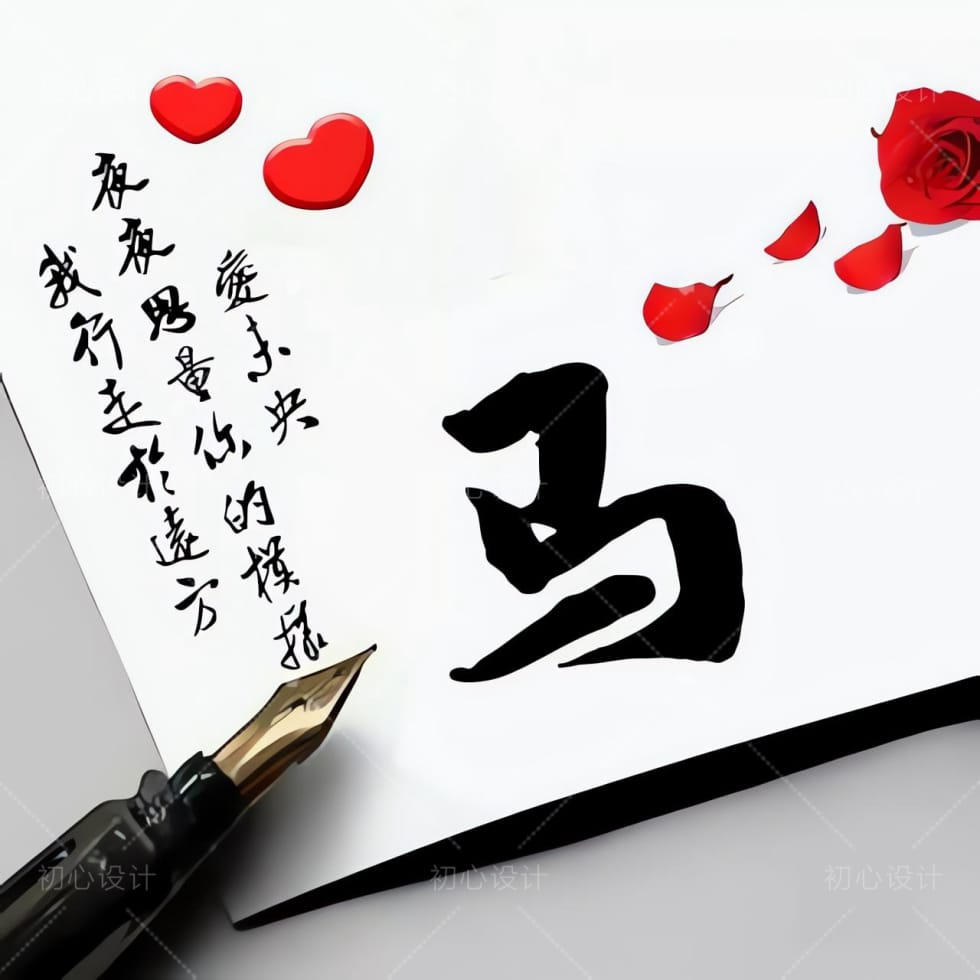 愛未央
夜夜思量你的模樣
我行走於遠方
马
初心设计
初心设计
初心设计